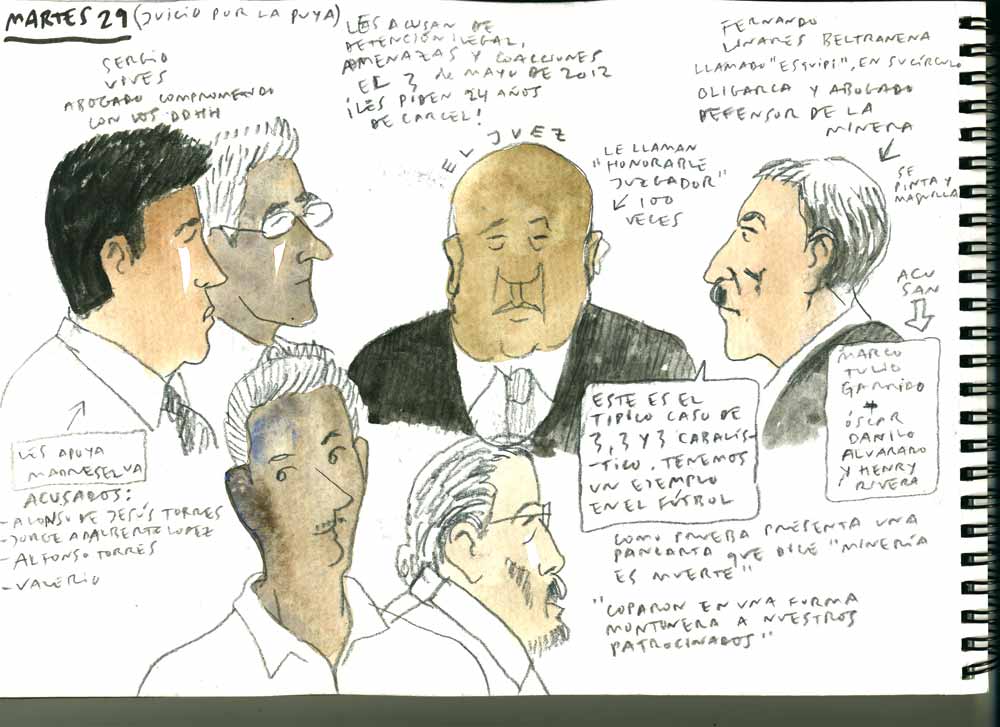 MARTES 29 (JUICIO POR LA PUYA)
SERGIO
VIVES
ABOGADO COMPROMETIDO
CON LOS DDHH
LES ACUSAN DE
DETENCIÓN ILEGAL,
AMENAZAS Y COACCIONES
EL 3 de MAYO DE 2012
¡LES PIDEN 24 AÑOS
DE CARCEL!
FERNANDO
LINARES BELTRANENA
LLAMADO "ESQUIPI", EN SU CÍRCULO
OLIGARCA Y ABOGADO
DEFENSOR DE LA
MINERA
SE
PINTA Y
MAQUILLA
EL JUEZ
LE LLAMAN
"HONORABLE
JUZGADOR"
100
VECES
ACU
SAN
MARCO
TULIO
GARRIDO
+
ÓSCAR
DANILO
ALVARADO
Y HENRY
RIVERA
ESTE ES EL
TIPICO CASO DE
3, 3 Y 3 CABALÍS-
TICO. TENEMOS
UN EJEMPLO
EN EL FÚTBOL
LES APOYA
MADRESELVA
ACUSADOS:
- ALONSO DE JESÚS TORRES
- JORGE ADALBERTO LOPEZ
- ALFONSO TORRES
- VALERIO
COMO PRUEBA PRESENTA UNA
PANCARTA QUE DICE "MINERÍA
ES MUERTE"
"COPARON EN UNA FORMA
MONTONERA A NUESTROS
PATROCINADOS"